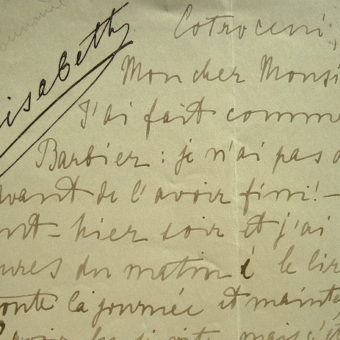 Cotroceni,
isabeth
Mon cher Monsi
J'ai fait comme
Barbier : je n'ai pas d
avant de l'avoir fini! —
nt-hier soir et j'ai
ures du matin à le lir
oute la journée et mainte